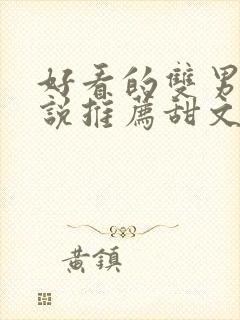 好看的雙男
說推薦甜文
黃鎮